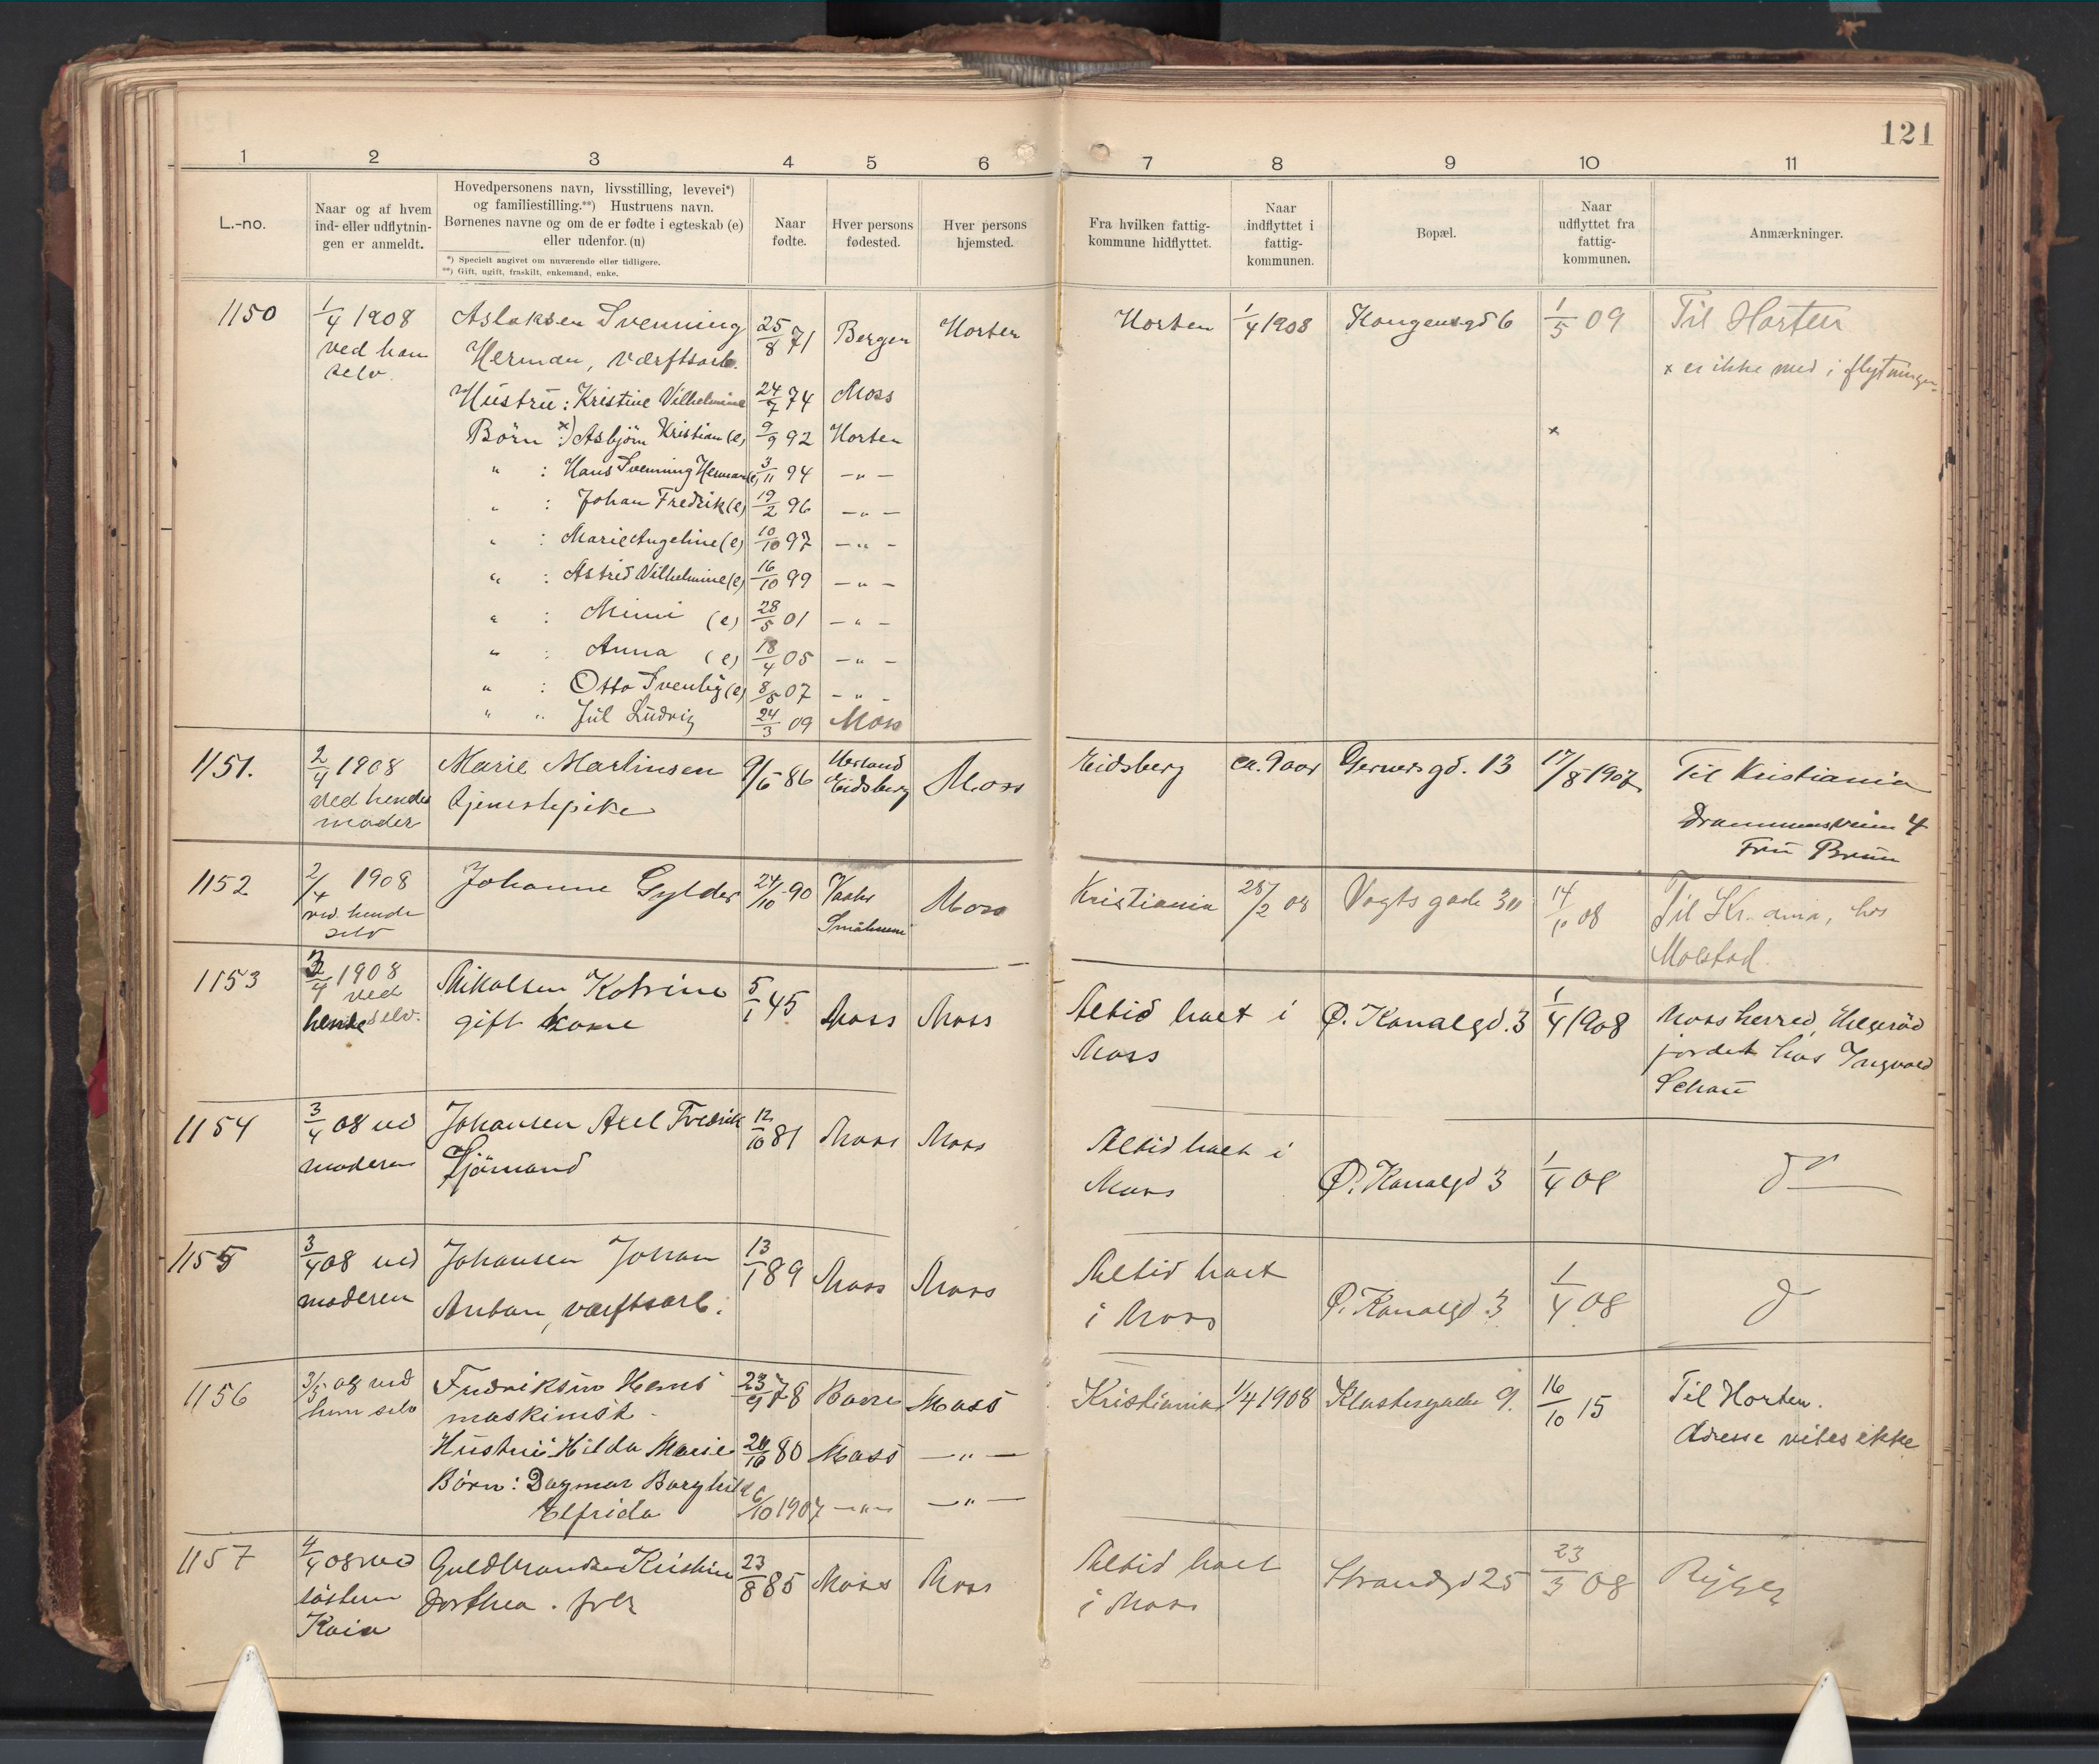 121
1 2 3 4 5 6 7 8 9 10 11
L.-no.
Naar og af hvem
ind- eller udflytnin-
gen er anmeldt.
Hovedpersonens navn, livsstilling, levevei*)
og familiestilling.**) Hustruens navn.
Børnenes navne og om de er fødte i egteskab (e)
eller udenfor. (u)
*) Specielt angivet om nuværende eller tidligere.
**) Gift, ugift, fraskilt, enkemand, enke.
Naar
fødte.
Hver persons
fødested.
Hver persons
hjemsted.
Fra hvilken fattig-
kommune hidflyttet.
Naar
indflyttet i
fattig-
kommunen.
Bopæl.
Naar
udflyttet fra
fattig-
kommunen.
Anmærkninger.
1150 1/4 1908 Aslaksen Svenning 25/8 71 Bergen Horten Horten 1/4 1908 Kongensgd 6 1/5 09 Til Horten
ved ham Herman, værftsarb. x er ikke med i flytningen
selv.
Hustru: Kristine Vilhelmine 24/7 74 Moss
Børn x) Asbjørn Kristian (e) 9/9 92 Horten x
" : Hans Svenning Herman (e) 3/11 94 — " —
" : Johan Fredrik (e) 19/2 96 — " —
" : Marie Angeline (e) 10/10 97 — " —
" : Astrid Vilhelmine (e) 16/10 99 — " —
" : Mimi (e) 28/5 01 — " —
" : Anna (e) 18/4 05 — " —
" : Otto Svenlig (e) 8/5 07 — " —
" " Jul Ludvig 24/3 09 Moss
1151. 2/4 1908 Marie Martinsen 9/6 86 Herland Moss Eidsberg ca. 9 aar Gernersgd. 13 17/8 1907 Til Kristiania
ved hendes tjenestepike Eidsberg Drammensveien 4
moder Fru Bruun
1152 2/4 1908 Johanne Gylder 24/10 90 Moss Kristiania 28/2 08 Vogtsgade 30 14/10 08 Til Kr.ania, hos
ved hende Molstad.
selv
1153 3/4 1908 Mikalsen Katrine 5/1 45 Moss Moss Altid havt i Ø. Kanalgd. 3 1/4 1908 Moss herred, Helgerød
ved gift kone Moss jordet hos Ingvald
hende selv. Schau
1154 3/4 08 ved Johansen Axel Fredrik 12/10 81 Moss Moss Altid havt i Ø. Kanalgd 3 1/4 08 do
moderen Sjømand Moss
1155 3/4 08 ved Johansen Johan 13/1 89 Moss Moss Altid havt Ø. Kanalgd. 3 1/4 08 do
moderen Anton, værftsarb. i Moss
1156 3/5 08 ved Fredriksen Hans 23/9 78 Borre Moss Kristiania 1/4 1908 Klostergade 9. 16/10 15 Til Horten.
ham selv maskinist. Adresse vites ikke
Hustru: Hilda Marie 80 Moss — " —
Børn: Dagmar Borghild 6/10 1907 — " — — " —
Elfrida
1157 4/4 08 ved Guldbrandsen Kristine 23/8 85 Moss Moss Altid havt Strandgd 25 23/3 08 Rygge
søsteren Dorthea. i Moss
Kaia